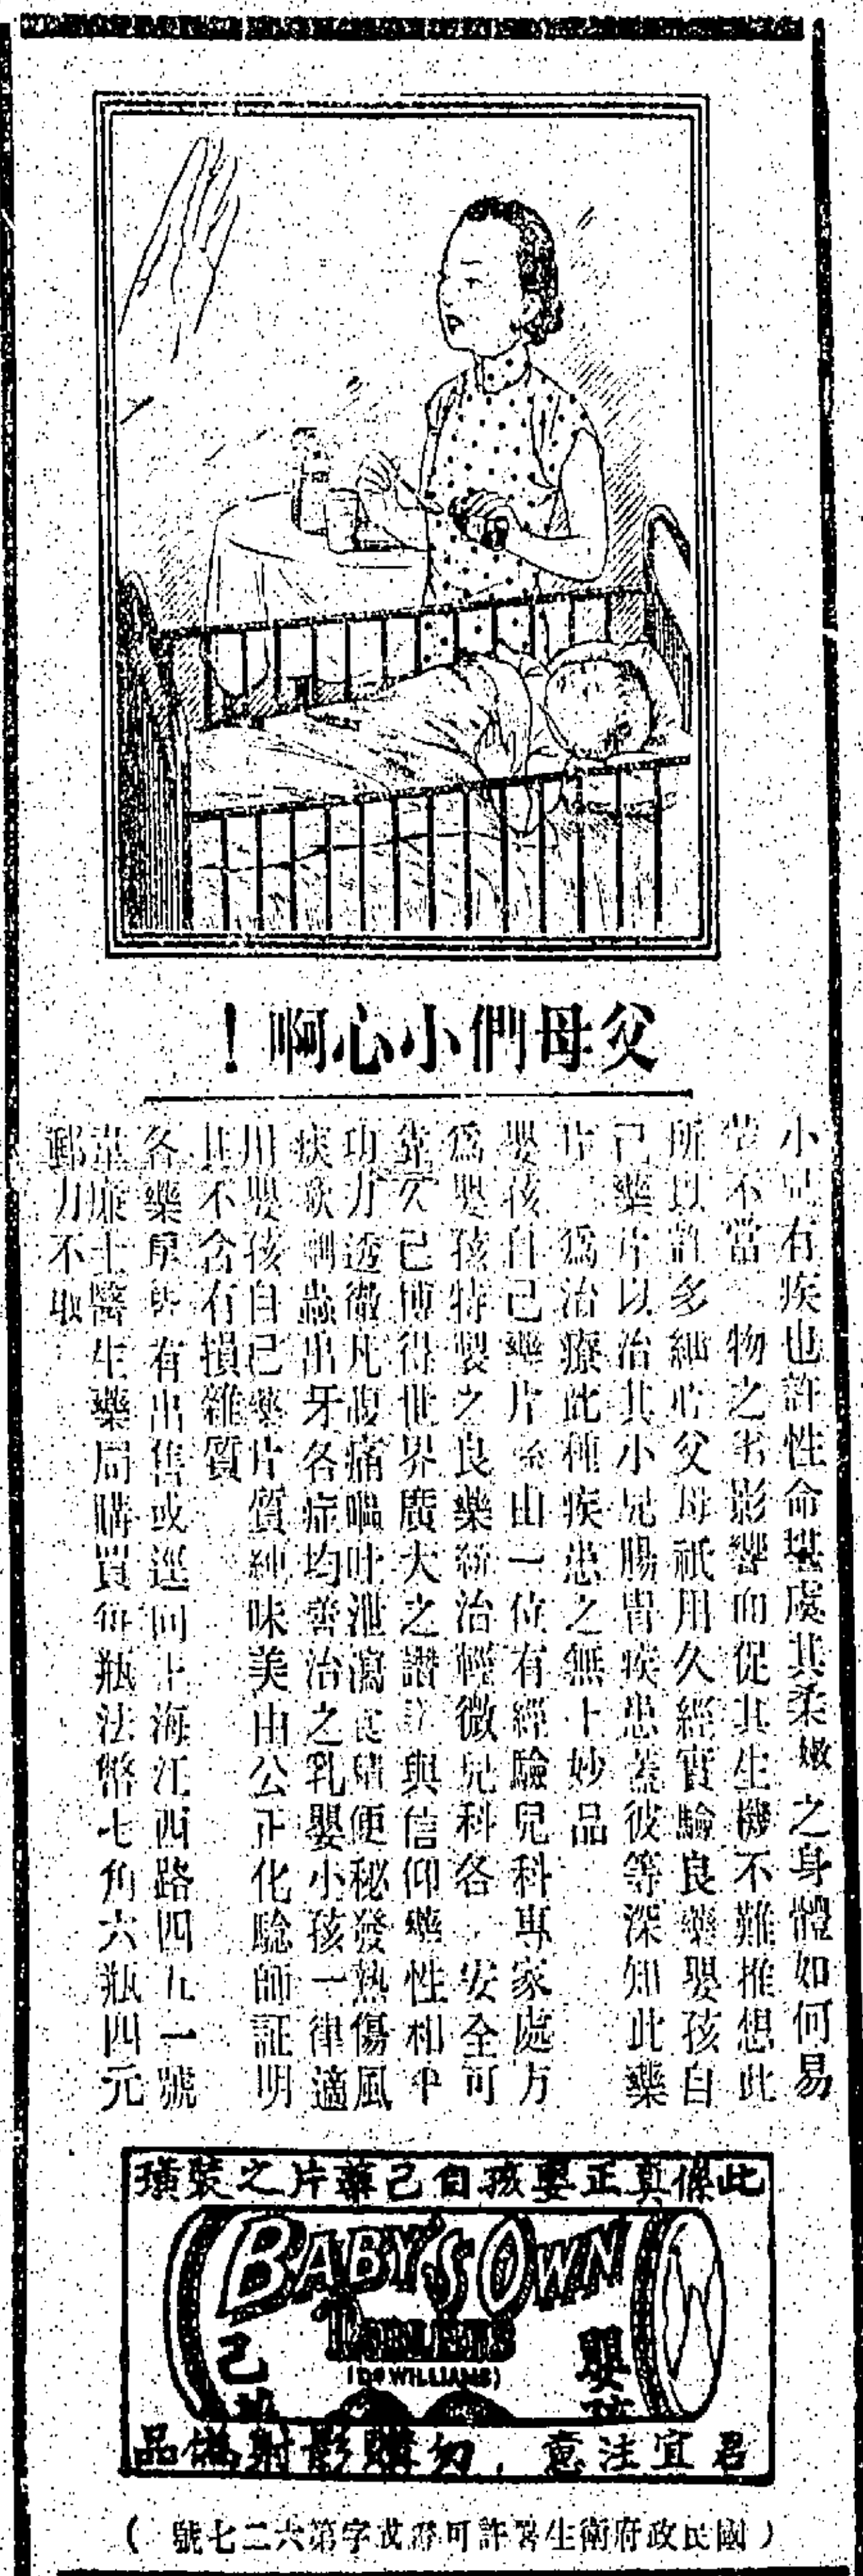 父母們小心啊！
小兒有疾也許性命堪虞其柔嫩之身體如何易
不當 物之害影響而促其生機不難推想此
所以許多細心父母祇用久經實驗良藥嬰孩自
己藥片以治其小兒腸胃疾患蓋彼等深知此藥
片 爲治療此種疾患之無上妙品
嬰孩自己藥片係由一位有經驗兒科專家處方
爲嬰孩特製之良藥 治輕微兒科各 安全可
靠久已博得世界廣大之讚許與信仰藥性和平
功力透徹凡腹痛嘔吐泄瀉食積便秘發熱傷風
痰 蟲出牙各症均善治之乳嬰小孩一律適
用嬰孩自己藥片質純味美由公正化驗師証明
其不含有損雜質
各藥房皆有出售或逕向上海江西路四五一號
韋廉士醫生藥局購買每瓶法幣七角六瓶四元
郵力不取
此係真正嬰孩自己藥片之裝璜
BABY'S OWN
TABLETS
(Dr WILLIAMS)
嬰孩
己
君宜注意，勿購影射僞品
（國民政府衛生署許可證成字第六二七號）